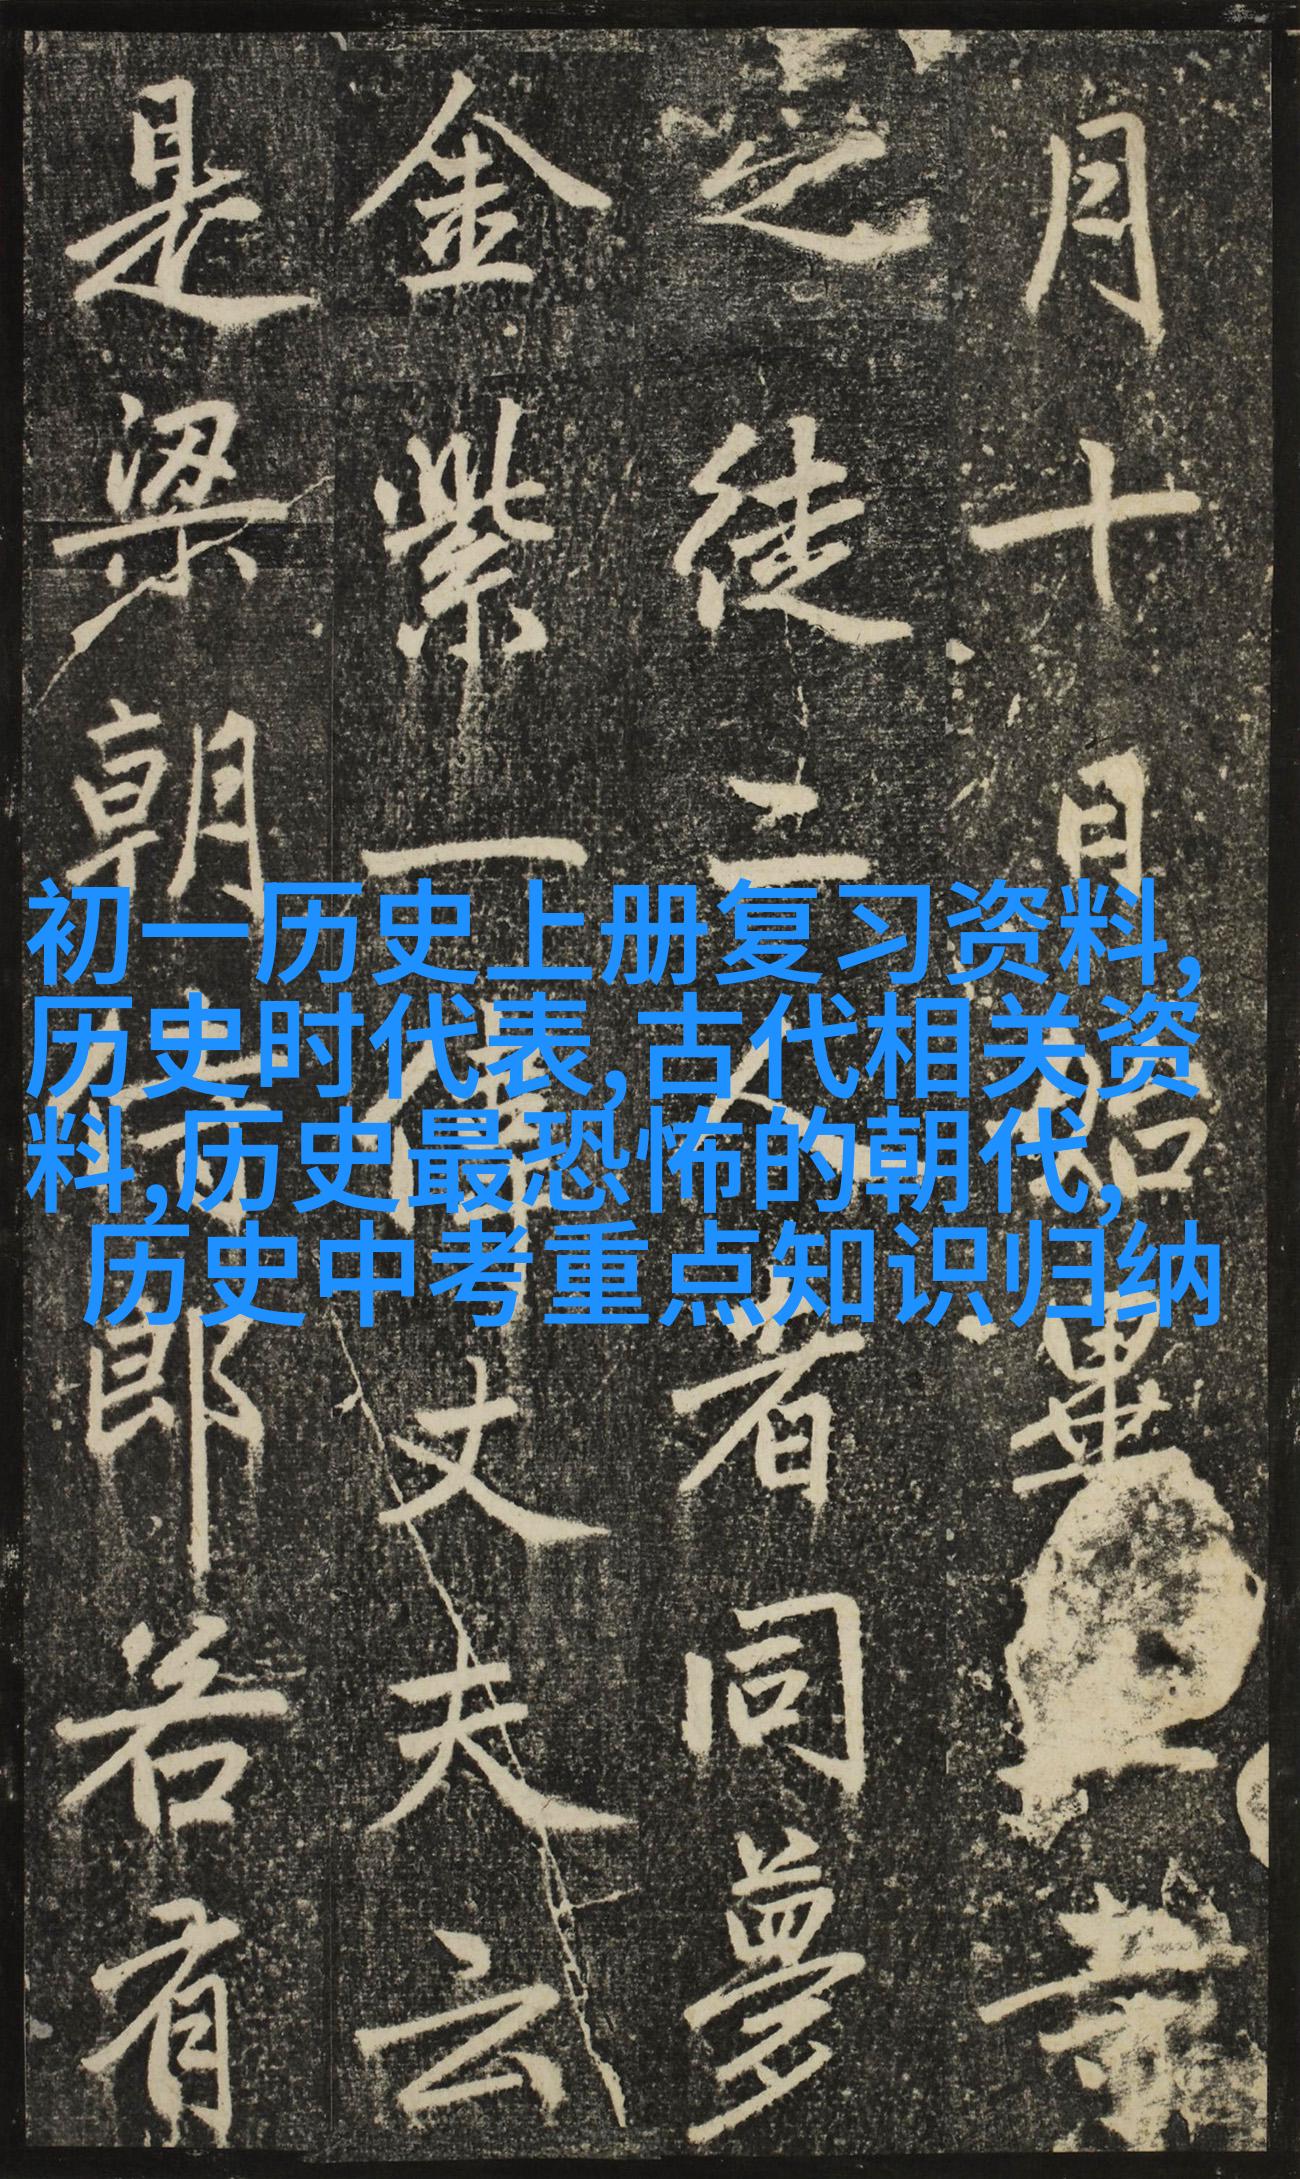 月十日始畢
之徒二人者同夢
金紫一偉丈夫云
是梁朝侍郎若有
初一历史上册复习资料,
历史时代表,古代相关资
料,历史最恐怖的朝代,
历史中考重点知识归纳